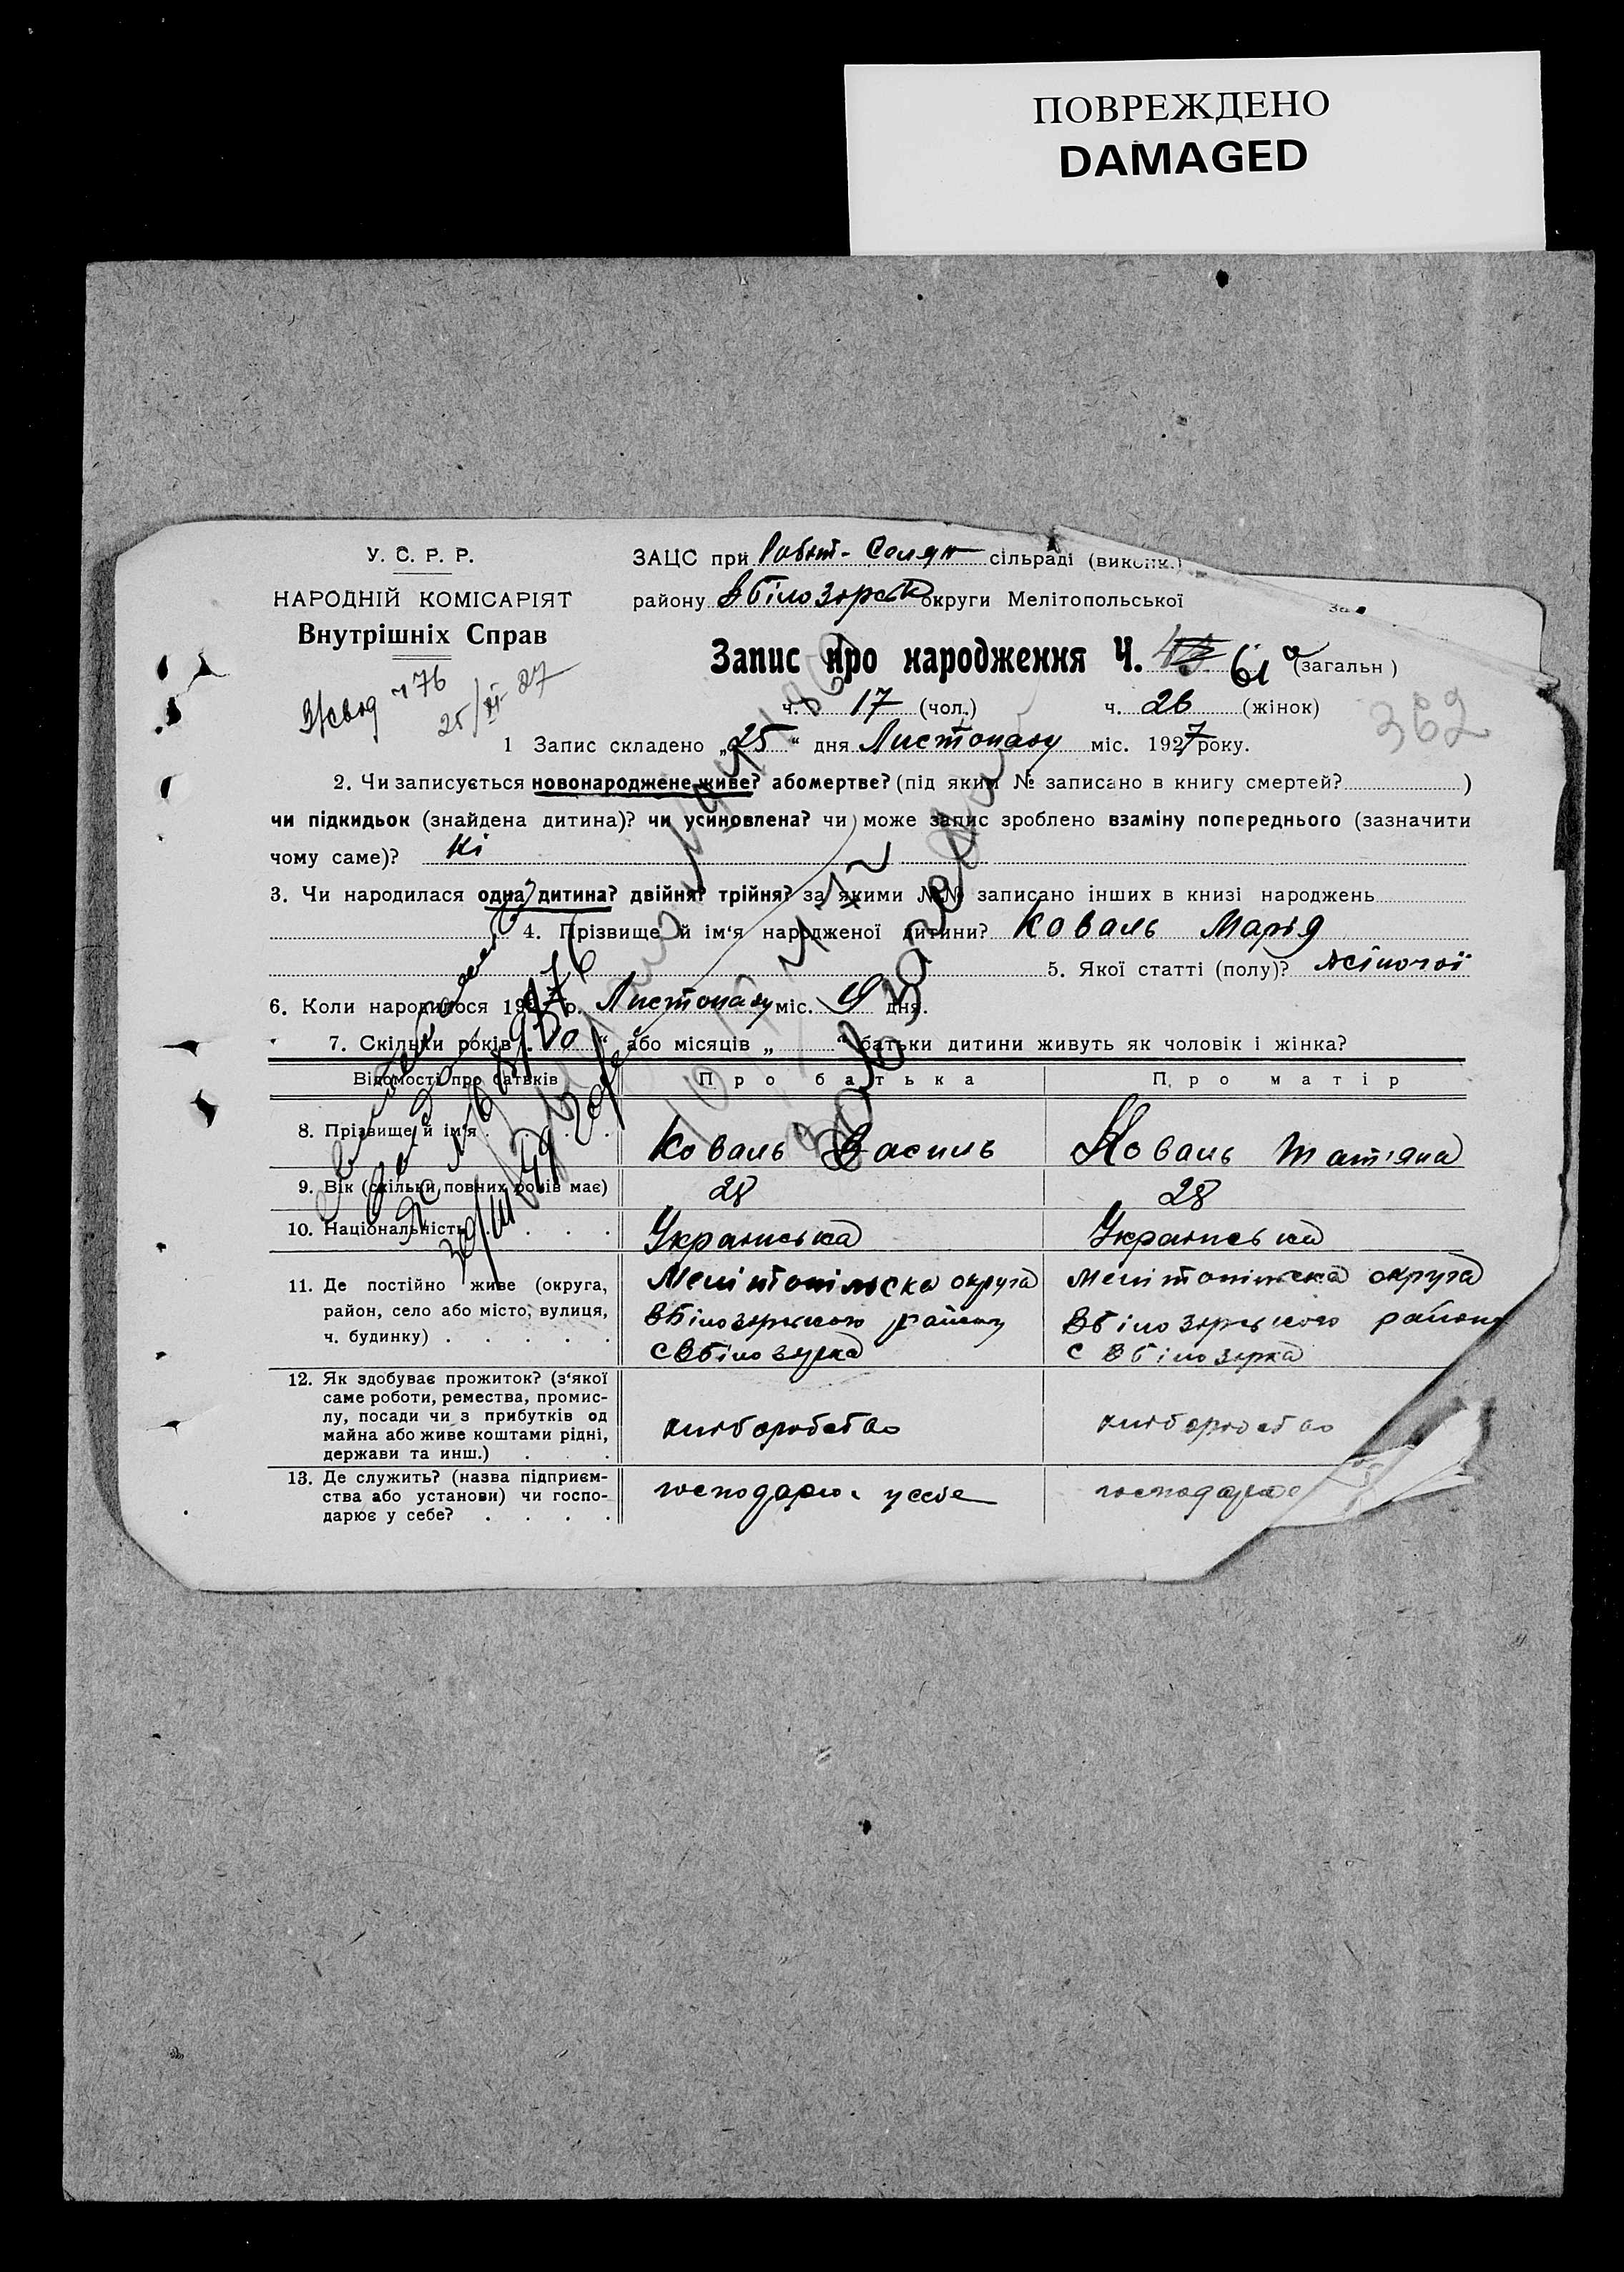 ПОВРЕЖДЕНО
DAMAGED
У. С. Р. Р.
НАРОДНІЙ КОМІСАРІЯТ
Внутрішніх Справ
76
25/XI 27
ЗАЦС при Робіт- Селян сільраді (викон.)
району Вбілозорськ округи Мелітопольської
За
Запис про народження Ч. 61 а (загальн)
ч. 17 (чол.) ч. 26 (жінок)
362
1 Запис складено „25“ дня Листопаду міс. 1927 року.
2. Чи записується новонароджене живе? або мертве? (під яким № записано в книгу смертей? )
чи підкидьок (знайдена дитина)? чи усиновлена? чи може запис зроблено взаміну попереднього (зазначити
чому саме)? Ні
3. Чи народилася одна дитина? двійня? трійня? за якими №№ записано інших в книзі народжень
4. Прізвище й ім‘я народженої дитини? Коваль Марья
5. Якої статті (полу)? Жіночої
6. Коли народилося 1927 р. Листопаду міс. 9 дня.
7. Скільки років „10“ або місяців „ “ батьки дитини живуть як чоловік і жінка?
Відомості про батьків Про батька Про матір
8. Прізвище й ім‘я Коваль Василь Коваль Тат'яна
9. Вік (скільки повних років має) 28 28
10. Національність Українська Українська
11. Де постійно живе (округа, Мелітопільска округа Мелітопільска округа
район, село або місто, вулиця, Вбілозорського району Вбілозорського району
ч. будинку) с Вбілозурка с Вбілозорка
12. Як здобуває прожиток? (з‘якої
саме роботи, ремества, промис-
лу, посади чи з прибутків од
майна або живе коштами рідні, хліборобство хліборобство
держави та инш.)
13. Де служить? (назва підприєм-
ства або установи) чи госпо- господарює у себе господарює
дарює у себе?